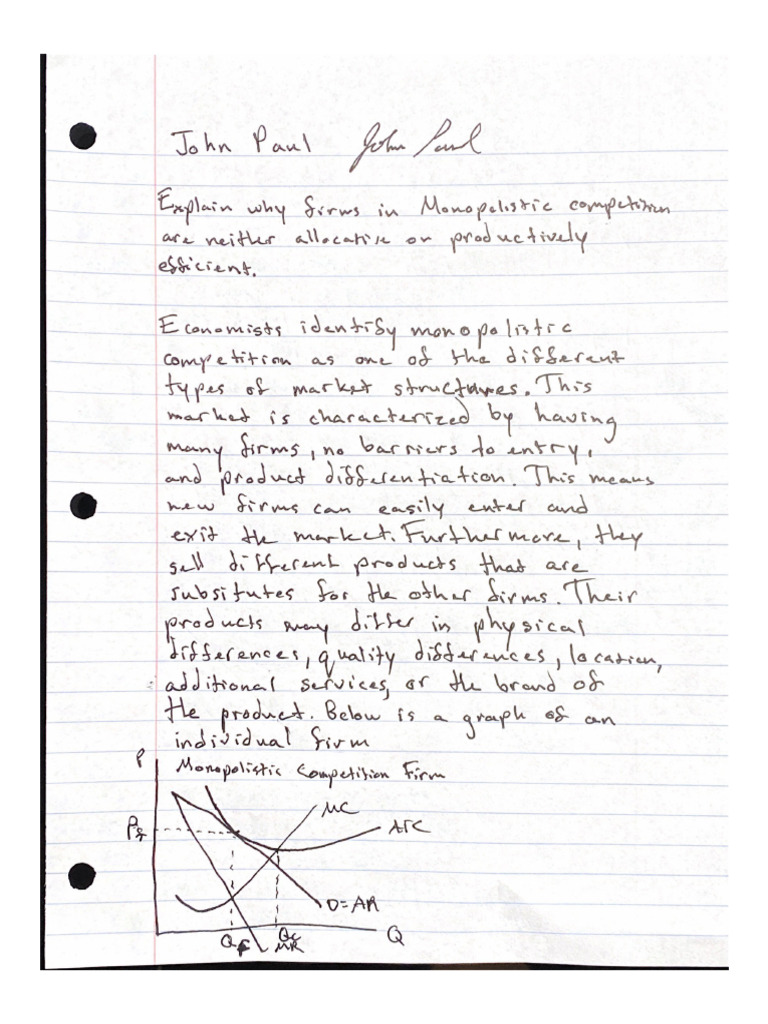 John Paul John Paul
Explain why firms in Monopolistic competition
are neither allocative or productively
efficient.
Economists identify monopolistic
competition as one of the different
types of market structures. This
market is characterized by having
many firms, no barriers to entry,
and product differentiation. This means
new firms can easily enter and
exit the market. Furthermore, they
sell different products that are
subsitutes for the other firms. Their
products may differ in physical
differences, quality differences, location,
additional services, or the brand of
the product. Below is a graph of an
individual firm
P Monopolistic Competition Firm
MC
Pf ATC
D=AR
Qf Qc Q
MR